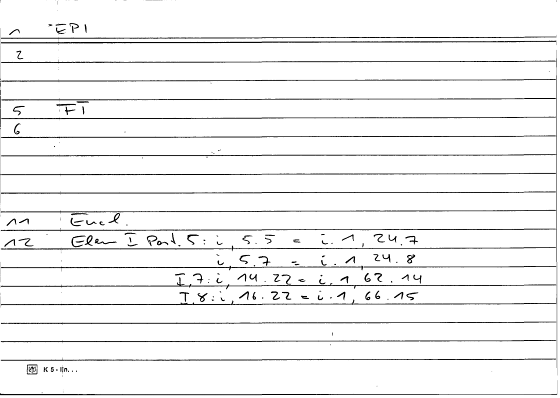 1 EPI
2
5 FT
6
11 Eucl.
12 Elem I Post. 5: i, 5.5 = i. 1, 24.7
i, 5.7 = i. 1, 24.8
I,7: i, 14.22 = i. 1, 62.14
I.8: i, 16.22 = i. 1, 66.15
K 5 - I(n. . .